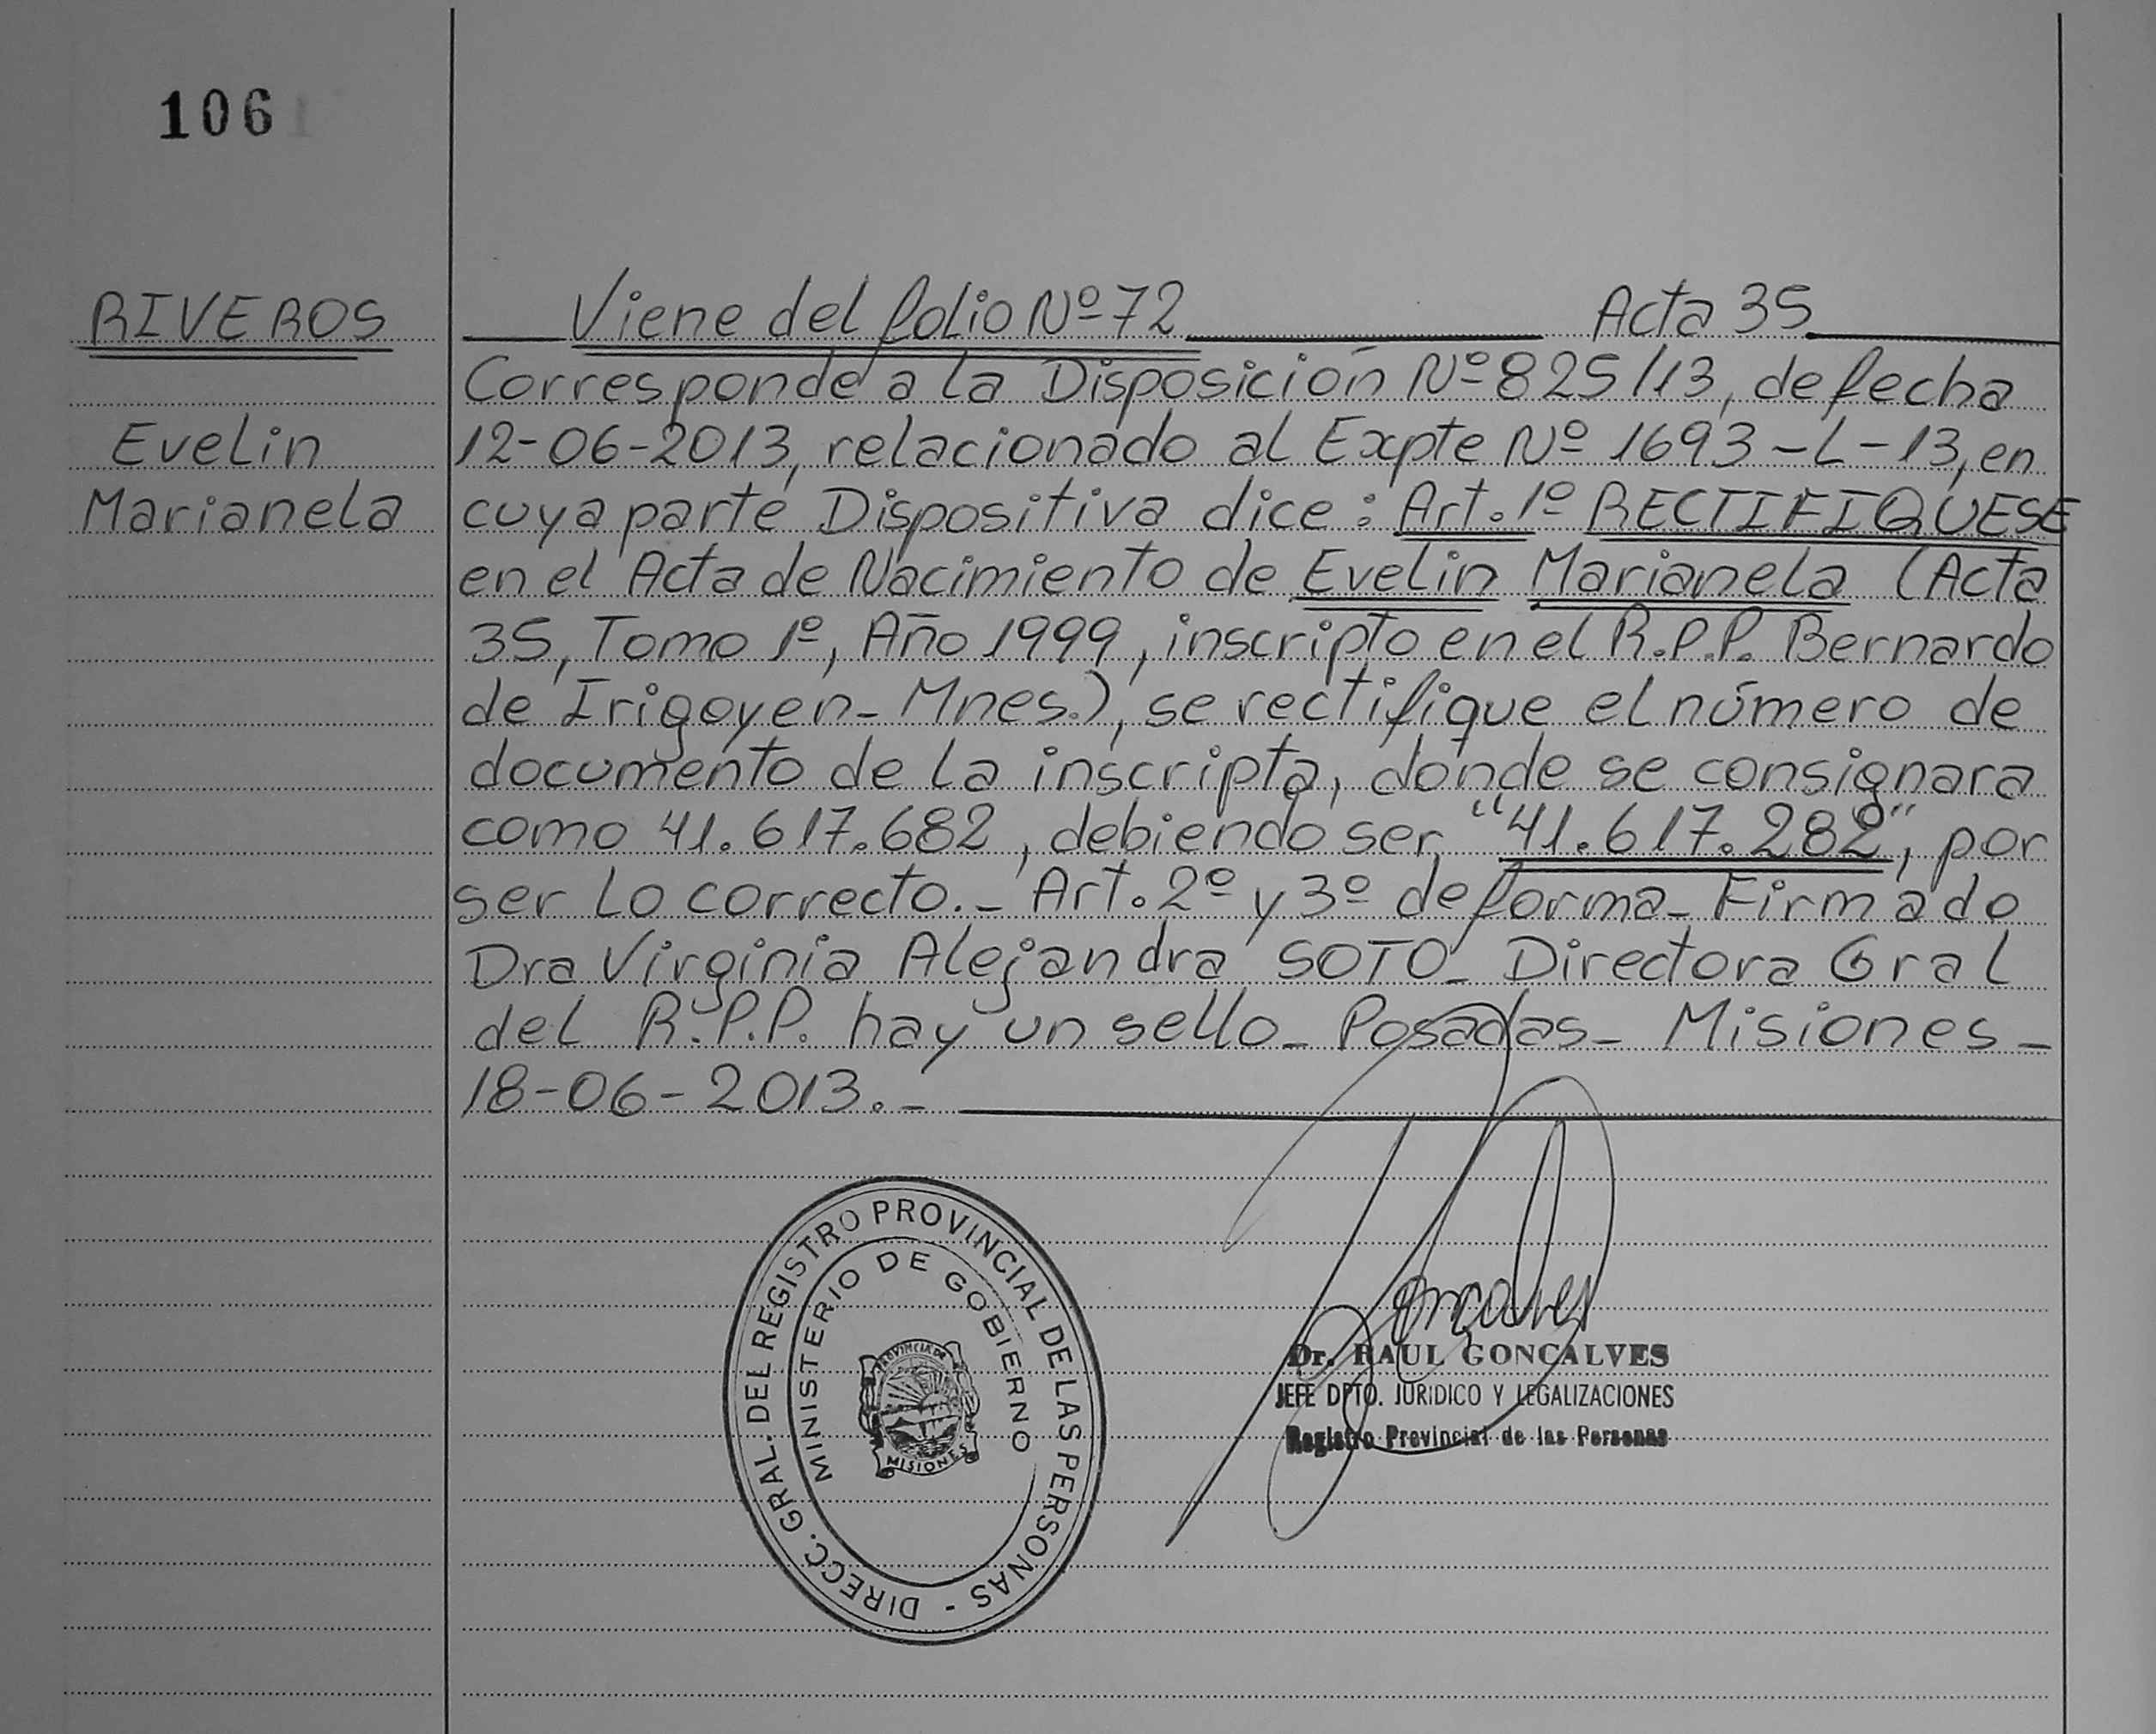 106
RIVEROS
Evelin
Marianela
Viene del folio Nº 72 Acta 35
Corresponde a la Disposición Nº 825/13, de fecha
12-06-2013, relacionado al Expte Nº 1693-L-13, en
cuya parte Dispositiva dice: Art. 1º RECTIFIQUESE
en el Acta de Nacimiento de Evelin Marianela (Acta
35, Tomo 1º, Año 1999, inscripto en el R.P.P. Bernardo
de Irigoyen- Mnes.), se rectifique el número de
documento de la inscripta, donde se consignara
como 41.617.682, debiendo ser, "41.617.282", por
ser lo correcto.- Art. 2º y 3º de forma- Firmado
Dra Virginia Alejandra SOTO- Directora Gral
del R.P.P. hay un sello- Posadas- Misiones-
18-06-2013.-
DIRECC. GRAL. DEL REGISTRO PROVINCIAL DE LAS PERSONAS -
MINISTERIO DE GOBIERNO
PROVINCIA DE
MISIONES
Goncalves
Dr. RAUL GONCALVES
JEFE DPTO. JURIDICO Y LEGALIZACIONES
Registro Provincial de las Personas